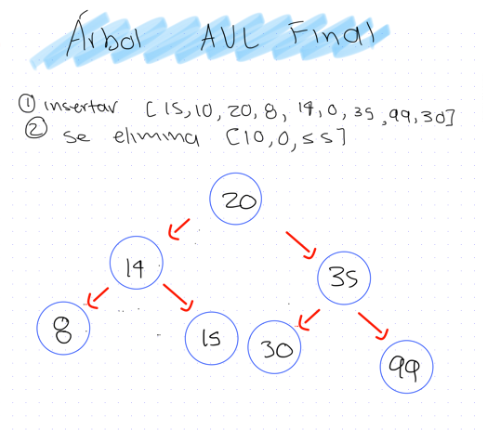 Árbol AVL Final
① insertar [15,10,20,8,14,0,35,99,30]
② se elimina [10,0,55]
20
14
35
8
15
30
99